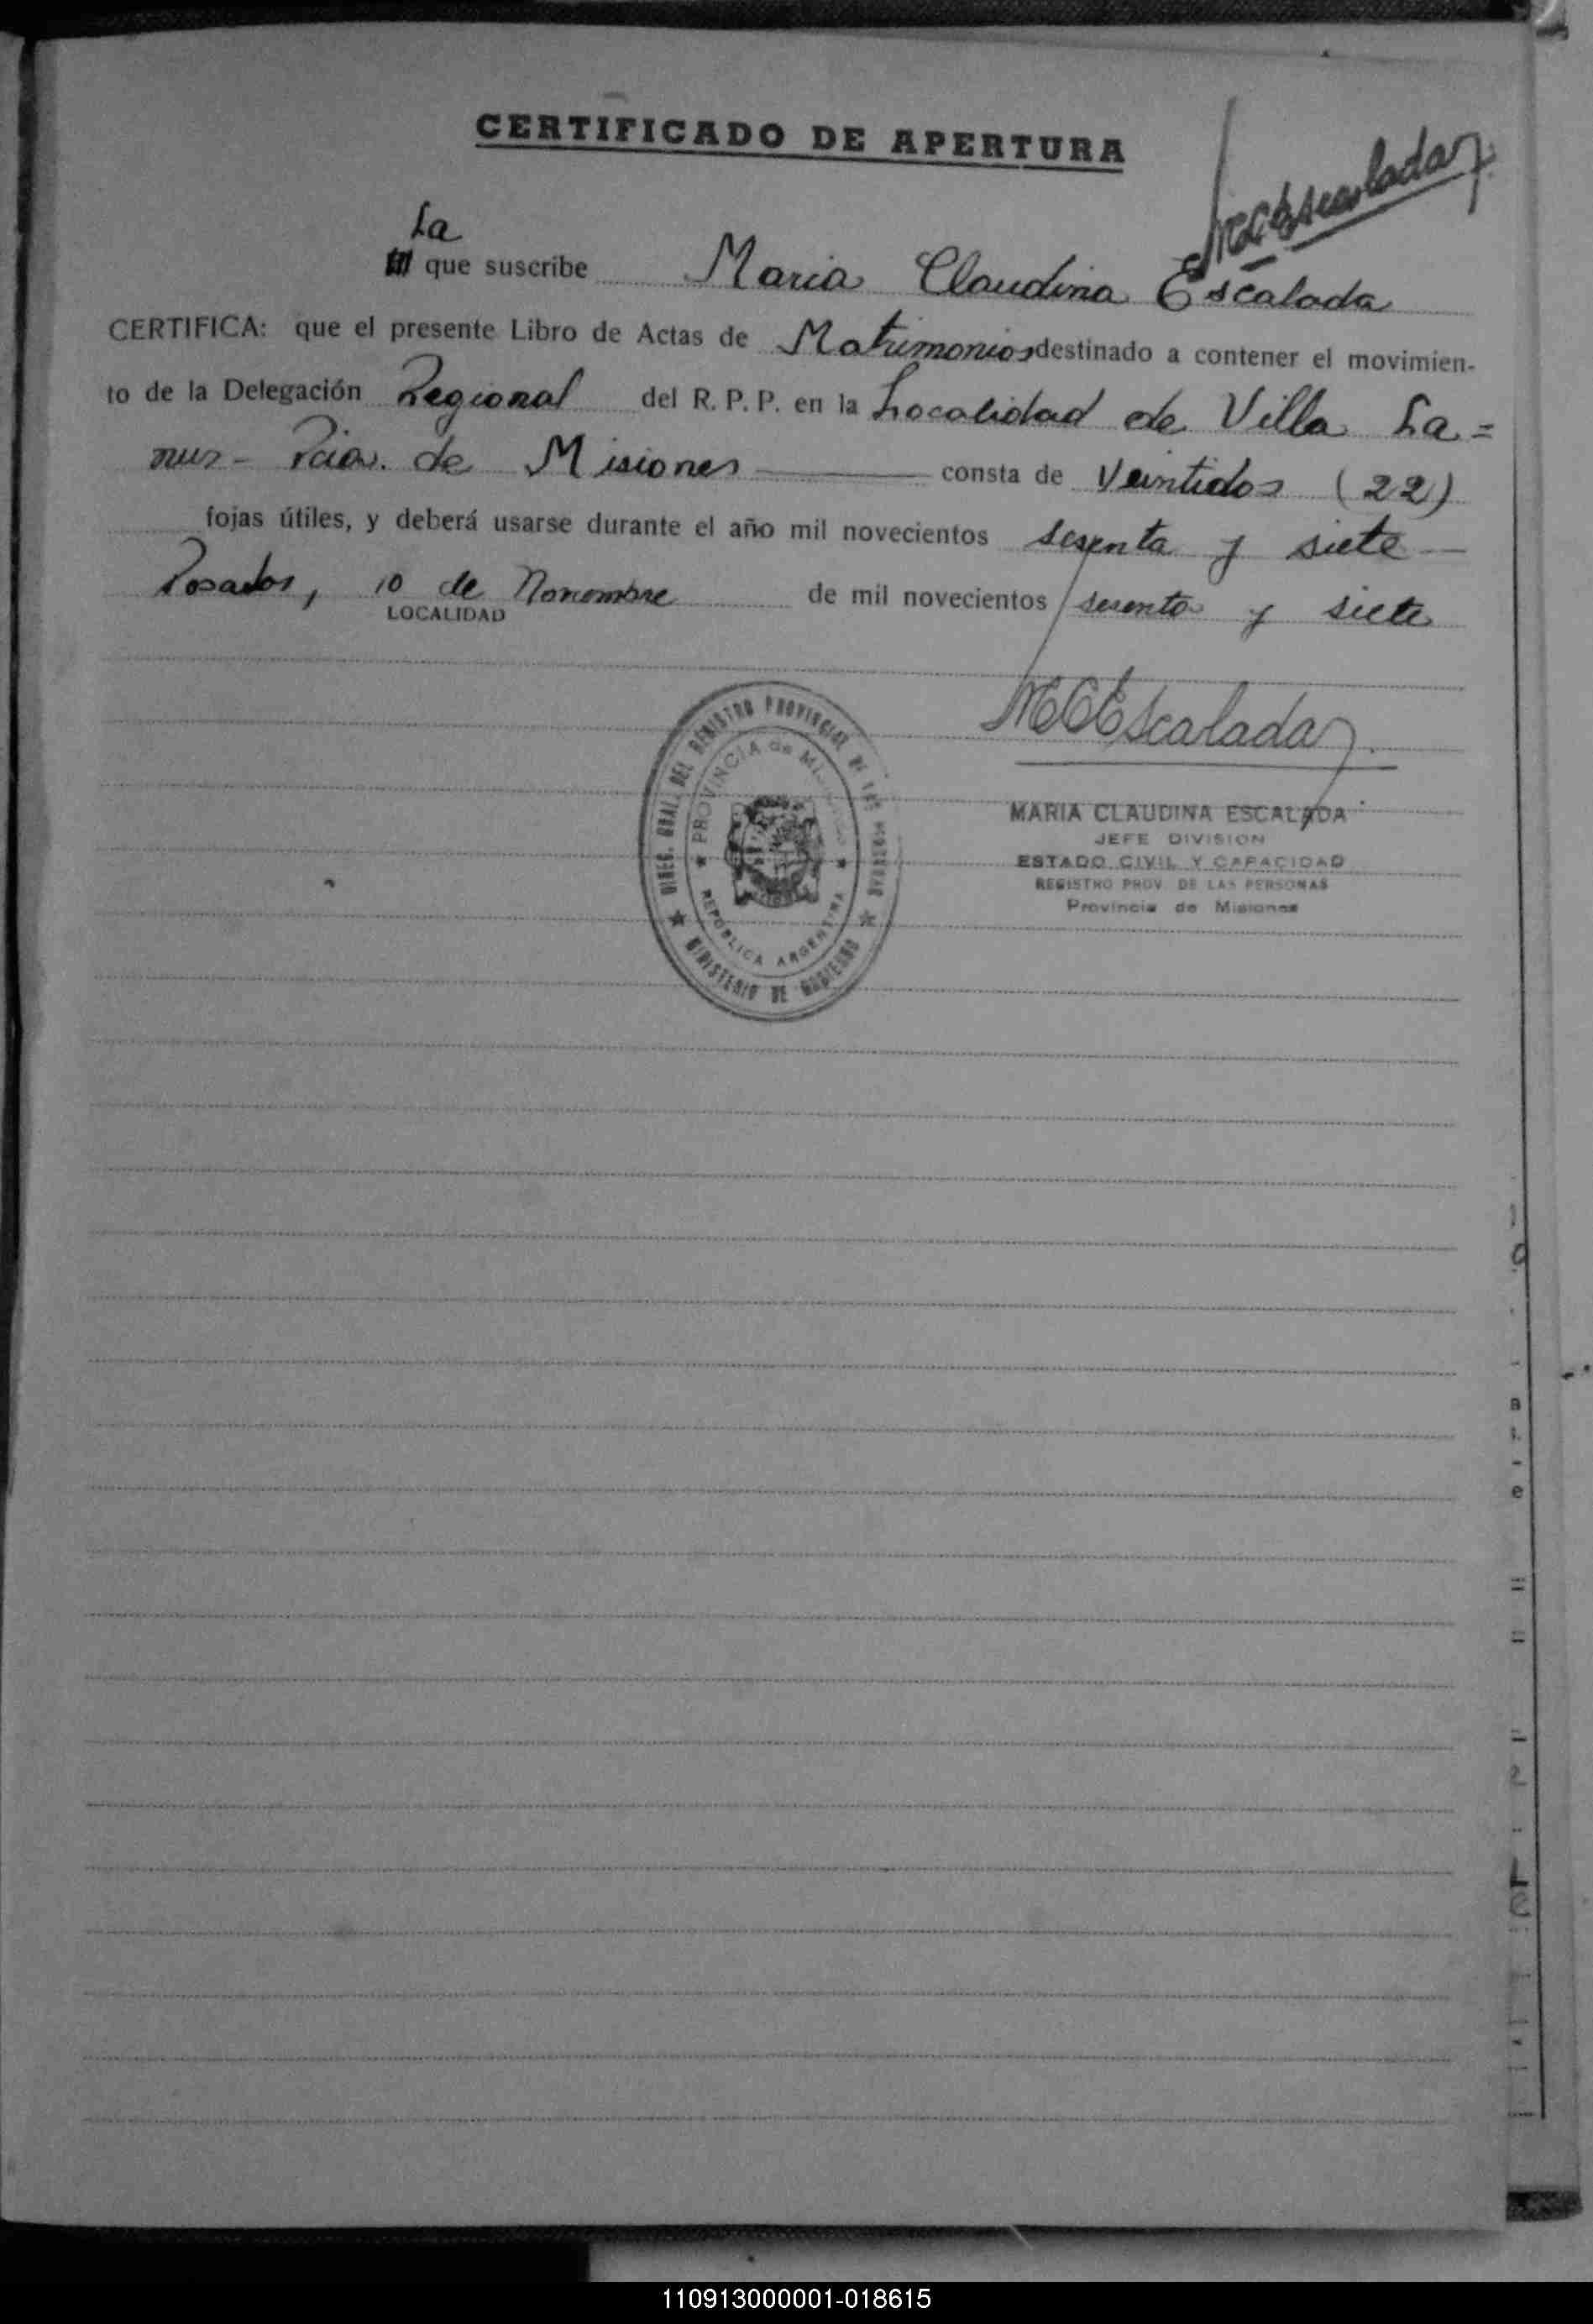 CERTIFICADO DE APERTURA
MCEscalada
La
que suscribe Maria Claudina Escalada
CERTIFICA: que el presente Libro de Actas de Matrimonios destinado a contener el movimien-
to de la Delegación Regional del R. P. P. en la Localidad de Villa La=
nus - Pcia. de Misiones consta de Veintidos (22)
fojas útiles, y deberá usarse durante el año mil novecientos sesenta y siete
Posadas, 10 de Noviembre de mil novecientos sesenta y siete
LOCALIDAD
MCEscalada
DIREC. GRAL. DEL REGISTRO PROVINCIAL DE LAS PERSONAS
PROVINCIA de MISIONES
REPUBLICA ARGENTINA
MINISTERIO DE GOBIERNO
MARIA CLAUDINA ESCALADA
JEFE DIVISION
ESTADO CIVIL Y CAPACIDAD
REGISTRO PROV. DE LAS PERSONAS
Provincia de Misiones
110913000001-018615